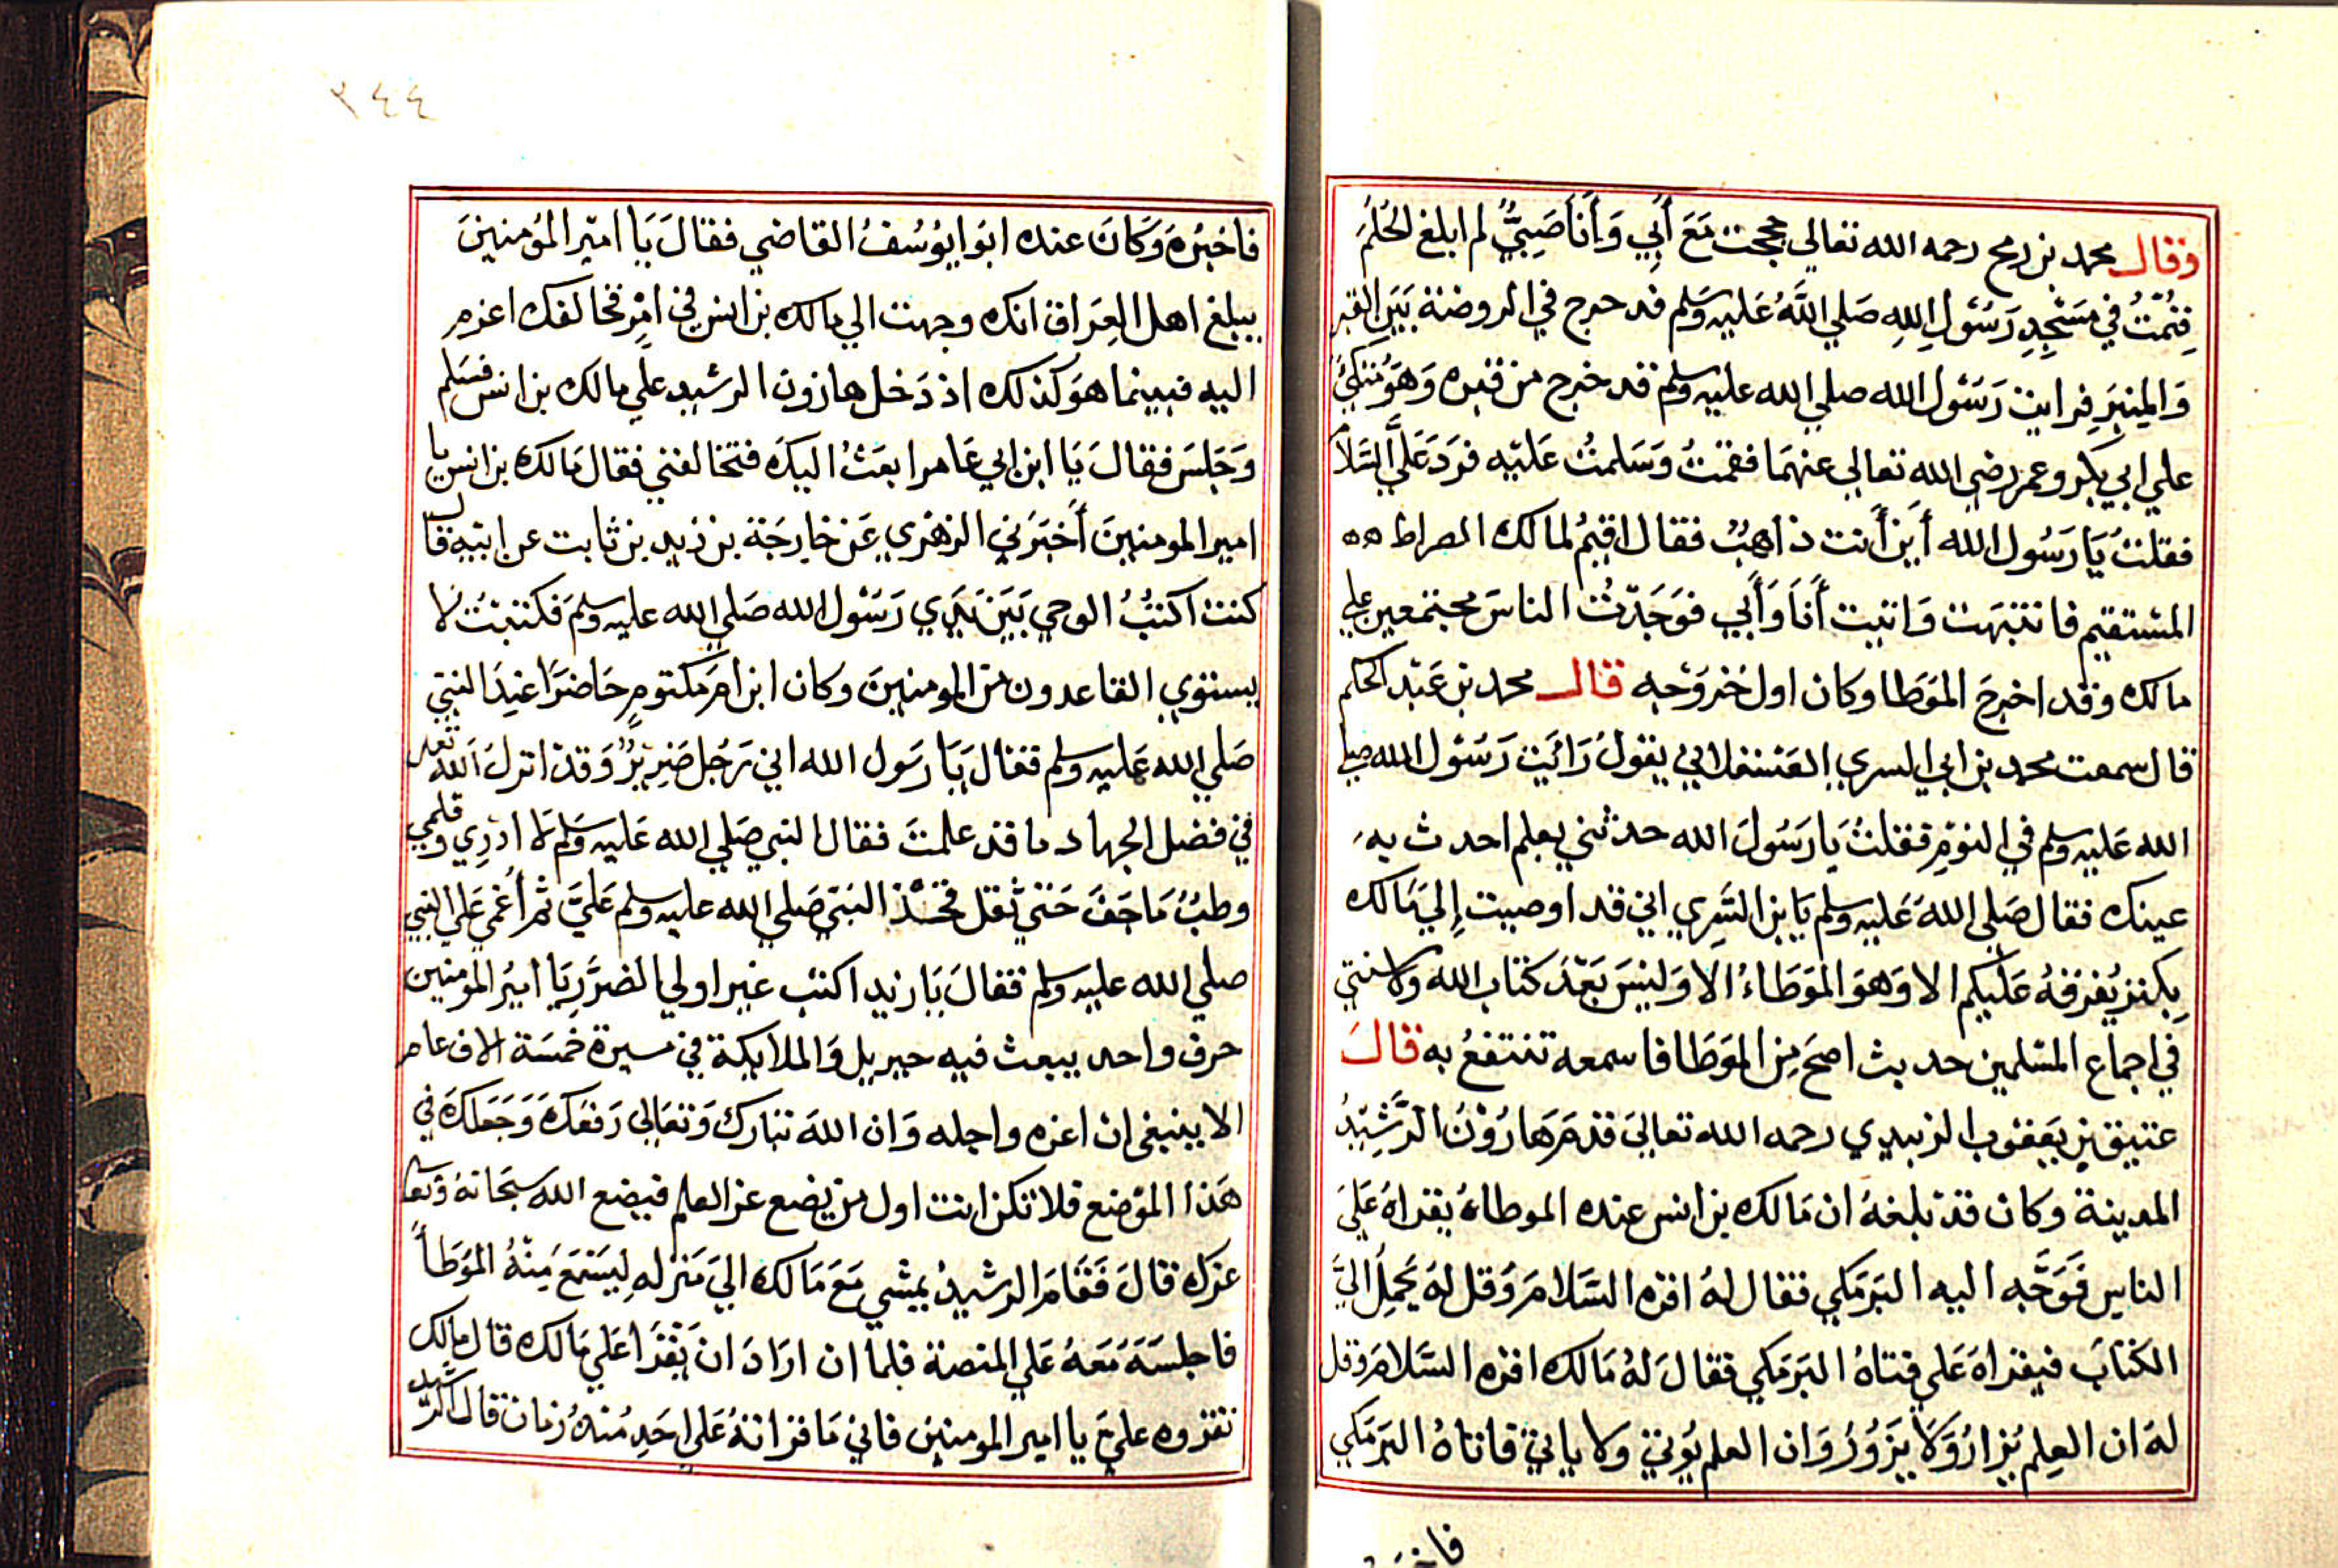 وقال محمد بن رمح رحمه الله تعالى حججت مَعَ أَبِي وَأَنَا صَبِيٌّ لم ابلغ الحُلمُ
فنمتُ في مَسْجِدِ رَسُوْلِ اللهِ صَلي اللهُ عَليهِ وَسَلم قد خرج في الروضة بَيَن القبر
وَالمِنبَرِ فرايت رَسُول الله صلي الله عليه وسلم قد خرج من قبره وَهوَ مُتكئ
علي ابي بكر وعمر رضي الله تعالي عنهمَا فقمتُ وَسَلمتُ عَليْه فرَد عَلَيَّ السَّلام
فقلتُ يَا رَسُول الله أَين أَنت ذاهبٌ فقال اقيمُ لمالك الصراط هه
المسْتقيم فانتبهَت وَاتيت أَنَا وَأَبي فوَجَدْتُ الناسَ مجتمعين علي
مالك وقد اخرجَ الموَطا وكان اول خرُوْجه قال محمد بن عَبْد الحكم
قال سمعت محمد بن ابي السري العَسْقلاني يقولُ رَائَيت رَسُوْل الله صلي
الله عَليه وسلم في النوْمِ فقلتُ يَا رَسُولَ الله حدثني بعلم احدث به
عينك فقال صَلي اللهَ عَليه وسلم يَا بن السَّرِي اني قد اوصيت إِليَ مَالك
بِكنز يُفرقهُ عَليكم الا وَهوَ الموَطاءُ الا وَليْسَ بَعْدَ كتاب الله ولا سنتي
في اجماع المسْلمين حديث اصحَ مِن الموَطا فاسمعه تنتفعُ به قالَ
عتيق بن يَعقوب الزبيدي رحمه الله تعالىَ قدمَ هَارُوْنُ الرَّشِيْدُ
المدينة وكان قدْ بلغهُ ان مَالك بن انس عنده الموطاءُ يقراهُ عَليَ
الناسِ فَوَجَّه اليه البَرمَكي فقال لهُ اقره السَّلامَ وَقل لهُ يَحمِلُ اليَّ
الكتابَ فيقراهَ عَلي فتاهُ البَرمَكي فقالَ لهُ مَالك اقره السَّلامَ وقل
لهَ ان العِلم يُزارُ وَلا يَزُورُ وَان العلم يُوتيَ ولا ياتيَ فاتاهُ البَرمَكي
٢٤٤
فاخبَرهَ وَكانَ عنده ابوُ ايوُسُفُ القاضي فقالَ يَا اميْر المؤمنينَ
يبلغ اهل العِرَاق انك وجهت الي مالك بن انس في امْرٍ فخالفك اعزم
اليه فبينما هوَ كذلك اذ دَخل هارون الرشيد علي مالك بن انس فسَلم
وَجَلسَ فقالَ يَا ابن ابي عَامر ابعَثُ اليكَ فتخالفني فقال مَالك بن انس يا
امير المومنينَ أَخبَرَني الزهْري عَن خارجَة بن زَيد بن ثابت عن ابيْه قال
كنت اكتبُ الوحي بَيَن يَدَي رَسُوْل الله صَلي الله عليه وسلم فكتبتُ لا
يستوي القاعدون من المومنينَ وكان ابن امِ مَكتومٍ حَاضرًا عِندَ النبي
صَلي الله عَليه وسلم فقالَ يَا رَسَول الله اني رَجُل ضَرِيْرٌ وَقدْ انزلَ الله تعالي
في فضل الجهاد ما قد علمتَ فقال النبي صَلي الله عَليه وَسَلم لا ادْرِي وقلمي
رطبٌ مَا جَفَ حَتيَ ثقل فخذ النبي صَلي الله عليه وسلم عَليَّ ثم أُغمي عَلى النبي
صلي الله عليه وسلم فقالَ يَا زيد اكتب غير اولي الضرَر يَا اميرَ المومنين
حرف واحد يبعث فيه جبريل وَالملايكة في مسيرة خمسَة الاف عام
الا ينبغي ان اعزه واجله وَان اللهَ تبارك وَتعَالى رَفعَكَ وَجَعَلكَ في
هَذا الموْضع فلا تكن انت اول من يضع عز العلم فيضع الله سبحَانهُ وَتعَالي
عزك قالَ فَقامَ الرشيدُ يمشي مَعَ مَالك الىَ مَنزلهِ لِيَسْمَعَ مِنْهُ الموَطأً
فاجلسَهَ مَعَهُ عَلي المنصة فلما ان ارَادَ ان يَقْرَا عَلي مَالك قال مالك
تقروه عليَ يا امير المومنين فاني مَا قراتهُ عَلى احَدٍ مُنذُ زمان قال الرشيد